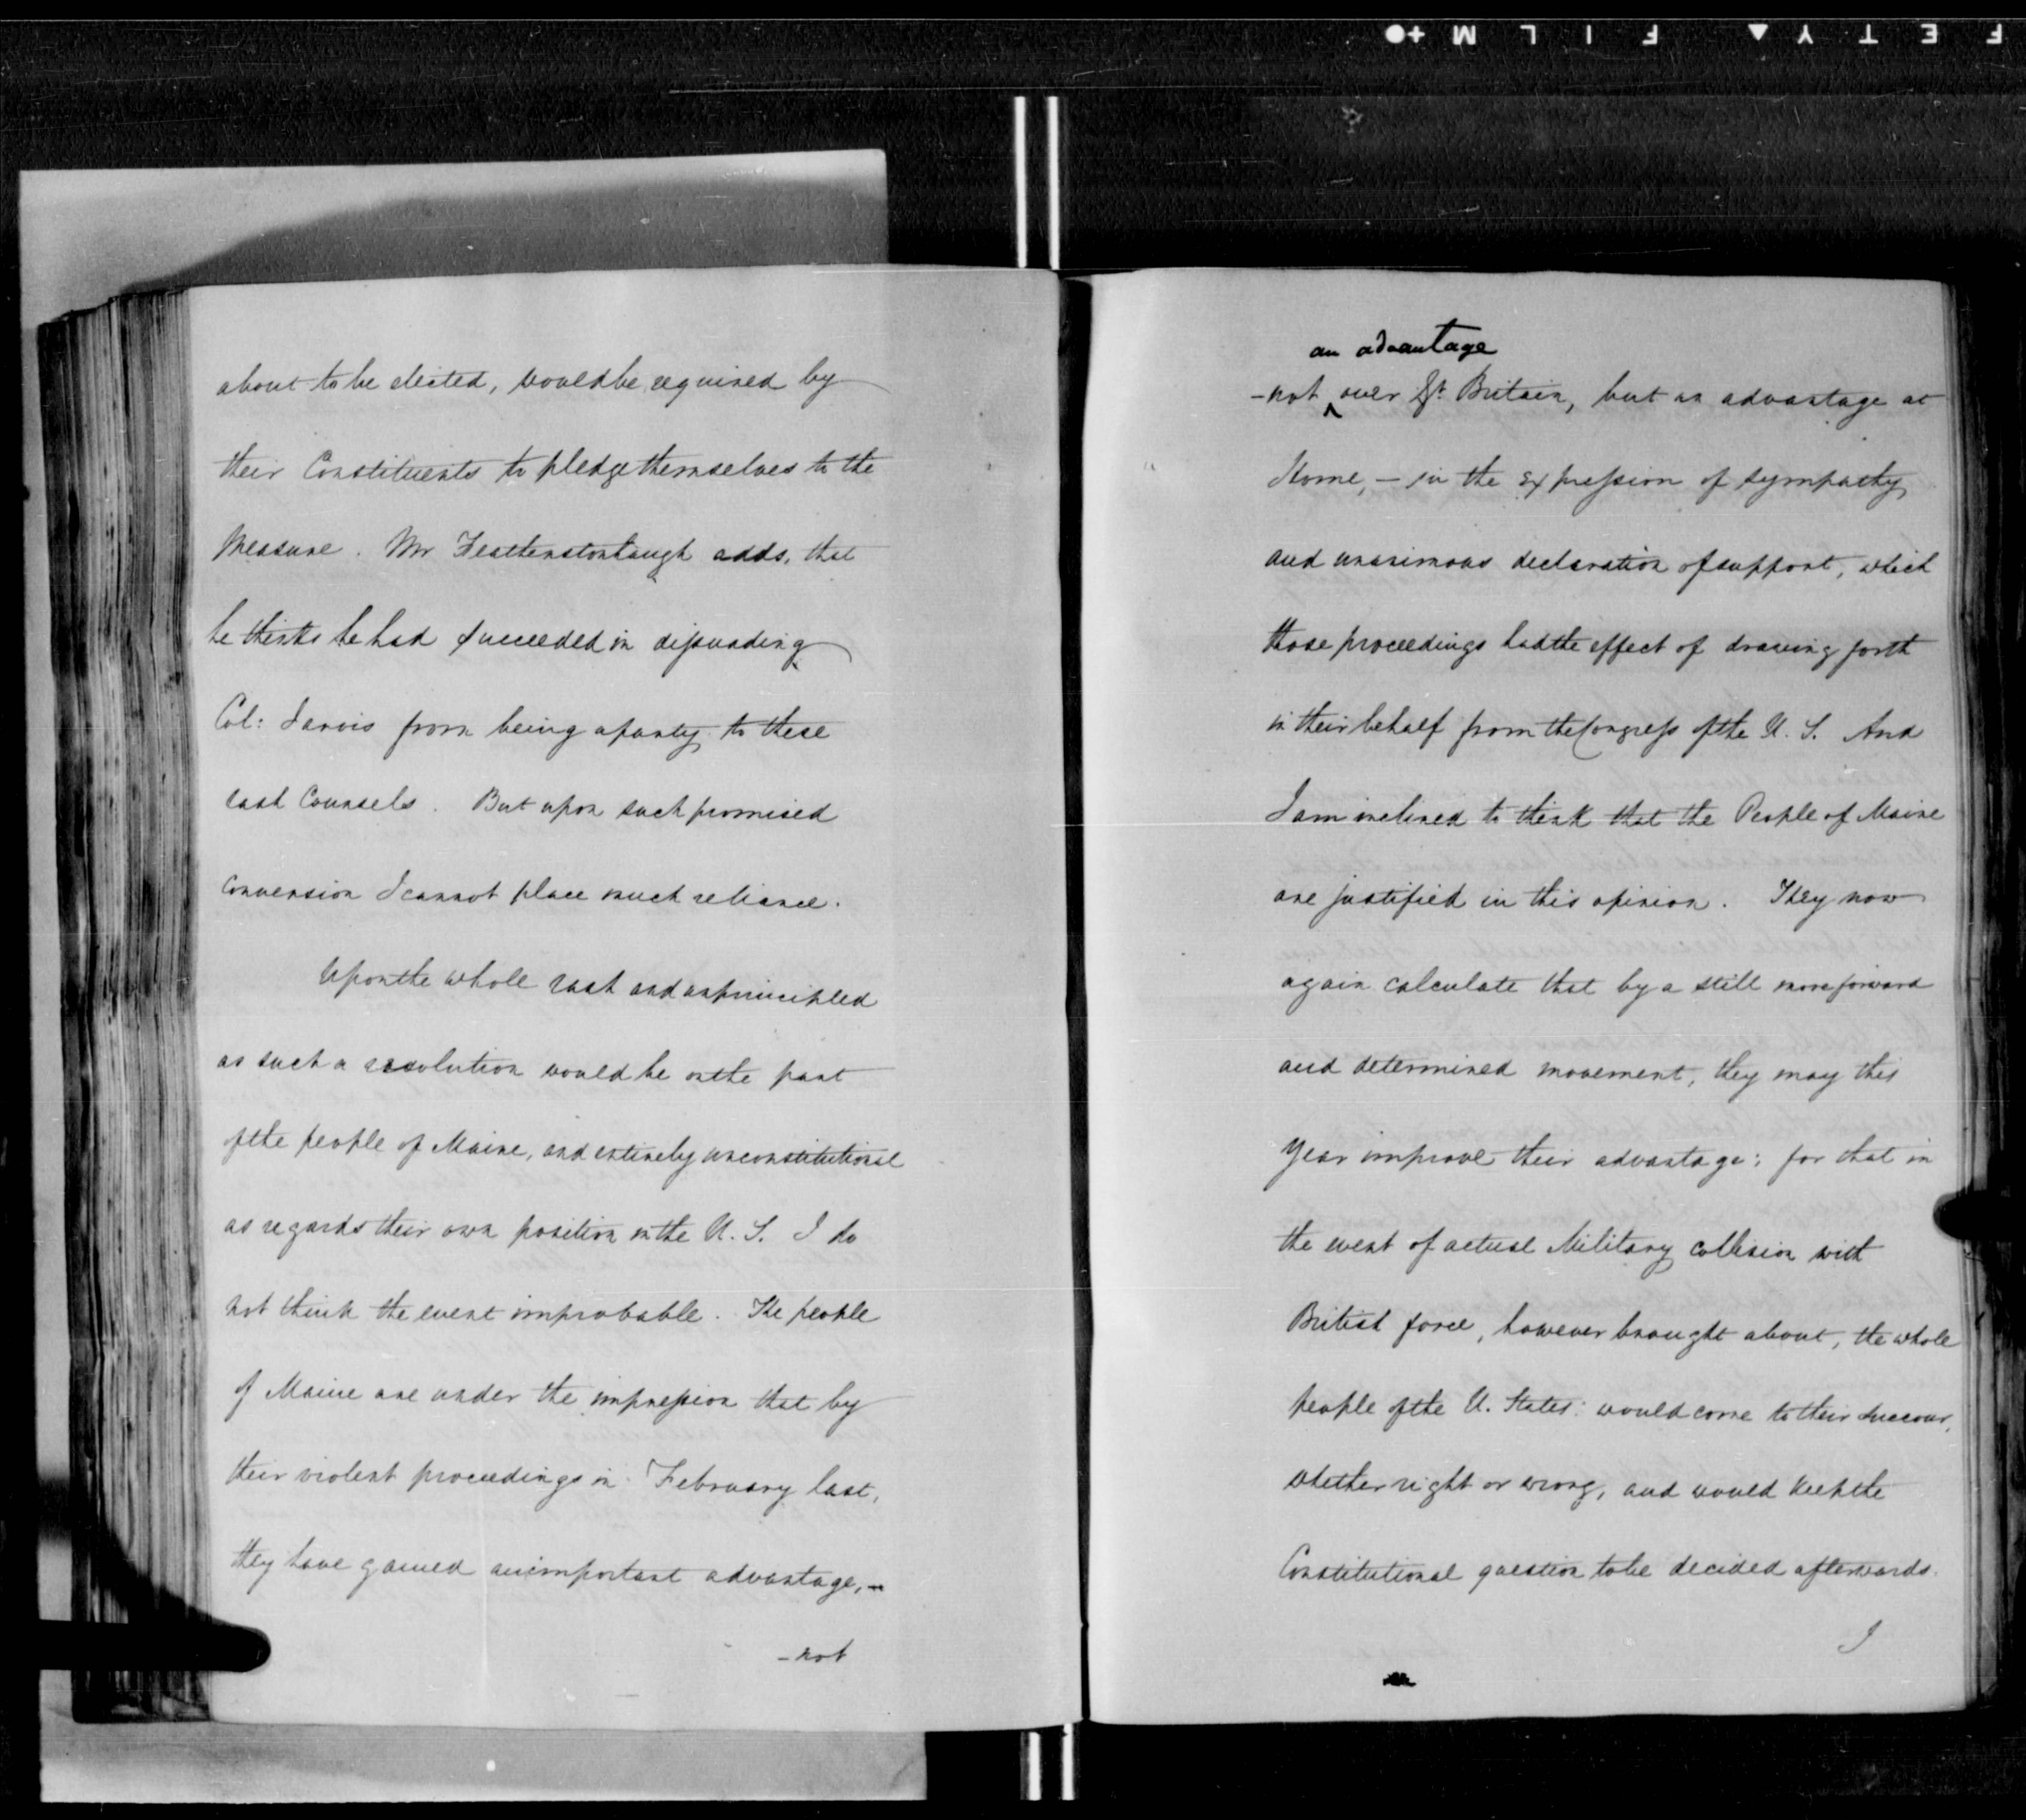 about to be elected, would be required by
their Constituents to pledge themselves to the
measure. Mr Featherstonhaugh adds, that
he thinks he had succeeded in dissuading
Col: Jarvis from being a party to these
rash Counsels. But upon such promised
Conversion I cannot place much reliance.
Upon the whole rash and unprincipled
as such a resolution would be on the part
of the people of Maine, and entirely unconstitutional
as regards their own position in the U. S. I do
not think the event improbable. The people
of Maine are under the impression that by
their violent proceedings in February last,
they have gained an important advantage, –
– not
an advantage
– not ^ over Gt. Britain, but an advantage at
Home, – in the expression of sympathy
and unanimous declaration of support, which
those proceedings had the effect of drawing forth
in their behalf from the Congress of the U. S. And
I am inclined to think that the People of Maine
are justified in this opinion. They now
again calculate that by a still more forward
and determined movement, they may this
year improve their advantage; for that in
the event of actual Military collision with
British force, however brought about, the whole
people of the U. States: would come to their succour,
whether right or wrong, and would keep the
Constitutional question to be decided afterwards.
I
F E T Y ▲ F I L M +●